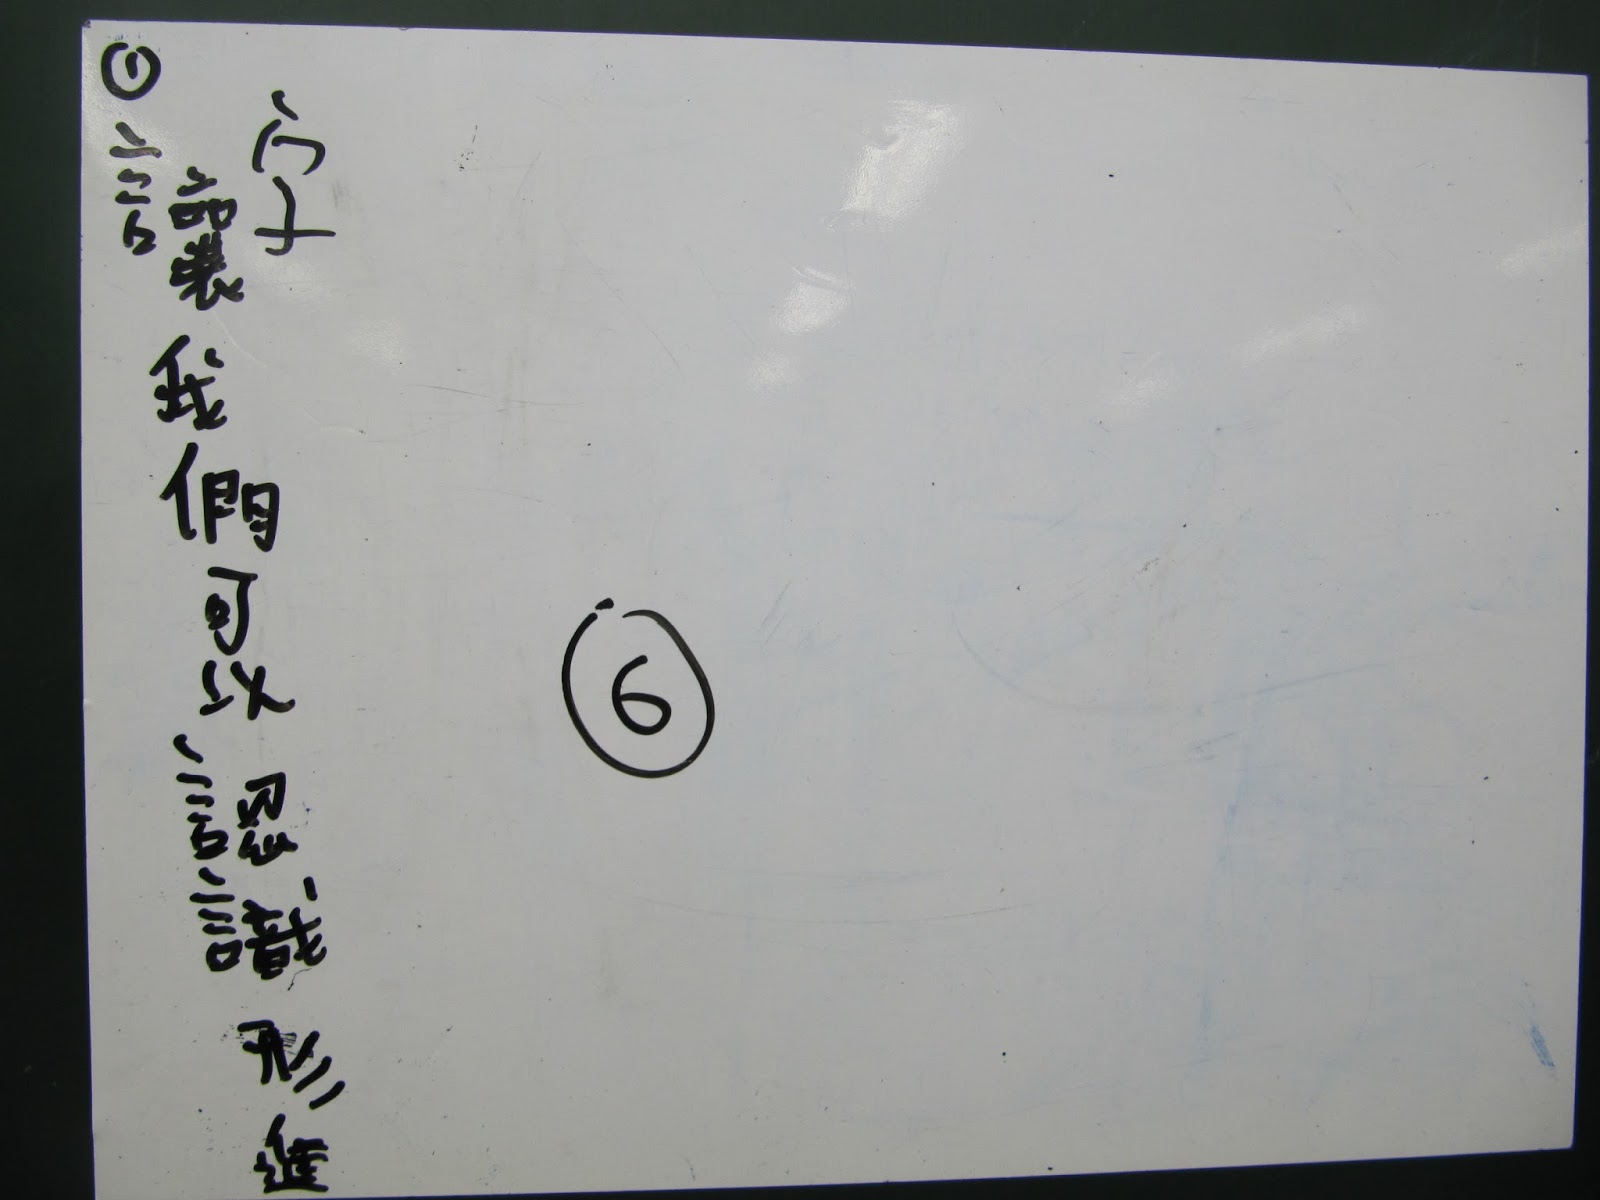 ①讓我們可以認識形進
字
⑥